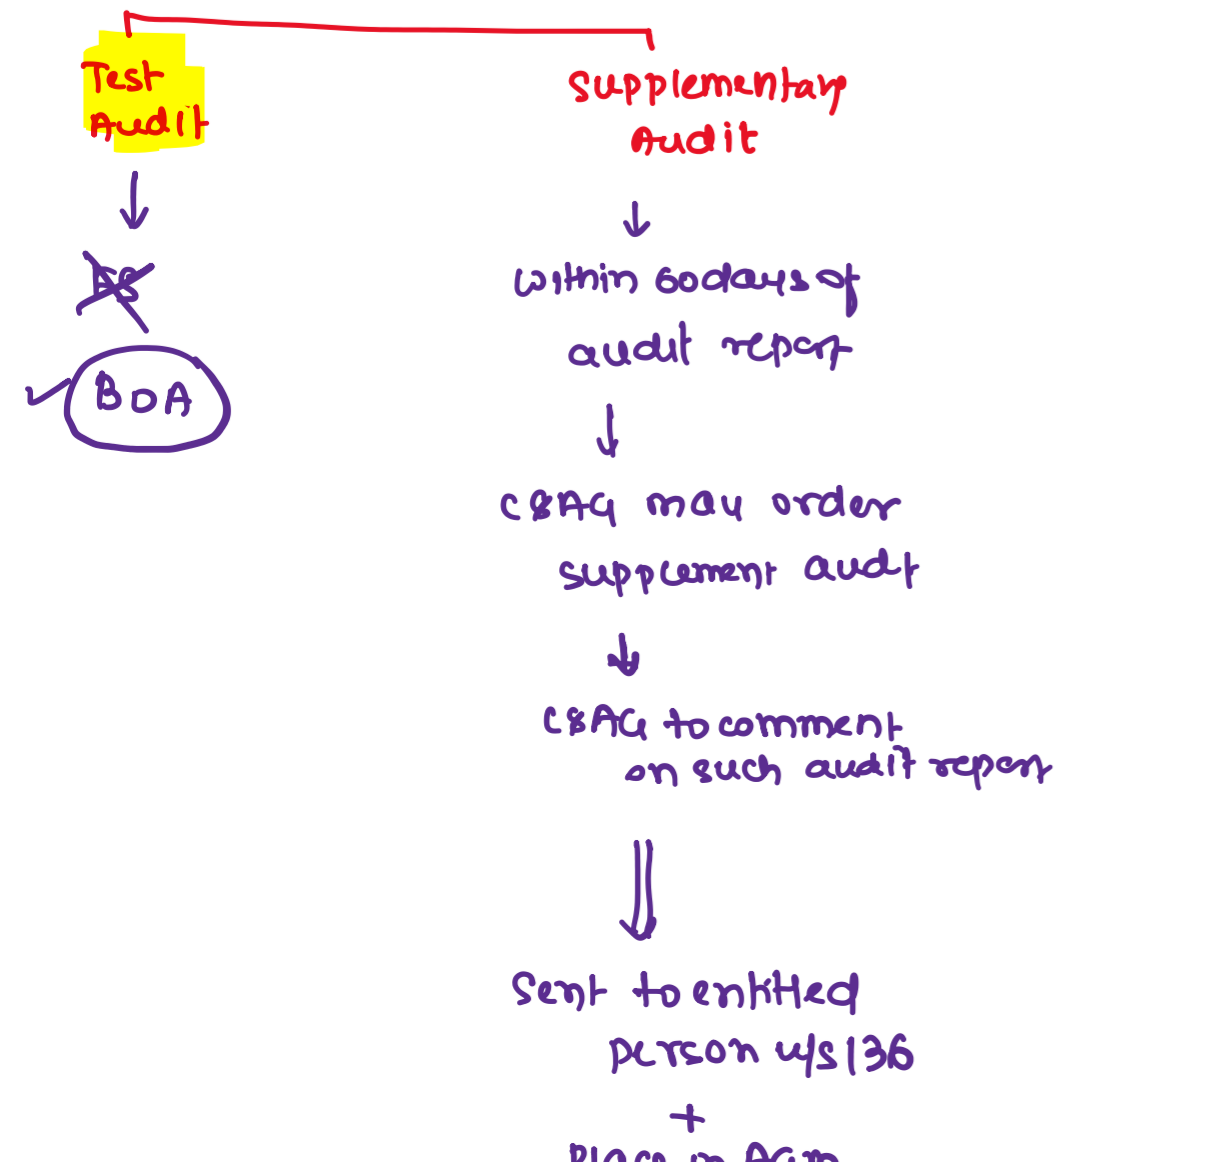 Test
Audit
Supplementary
Audit
FS
BOA
within 60 days of
audit report
C&AG may order
supplement audit
C&AG to comment
on such audit report
Sent to entitled
person u/s 136
+
Place in AGM